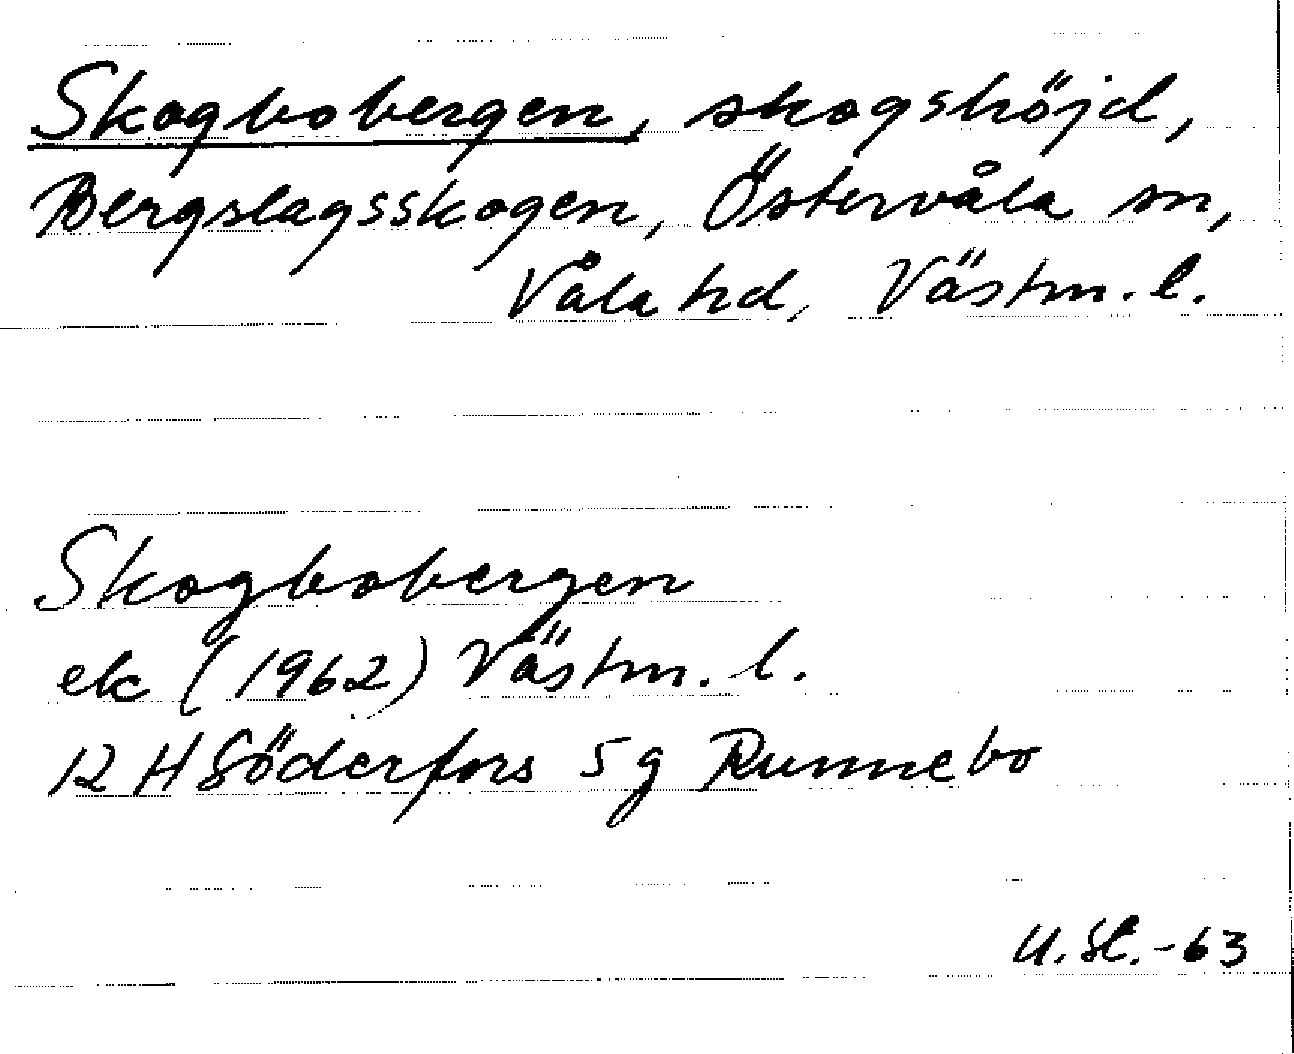 Skogbobergen, skogshöjd,
Bergslagsskogen, Östervåla sn,
Våla hd, Västm. l.
Skogbobergen
ek (1962) Västm. l.
12 H Söderfors 5 g Runnebo
U. Sl. -63